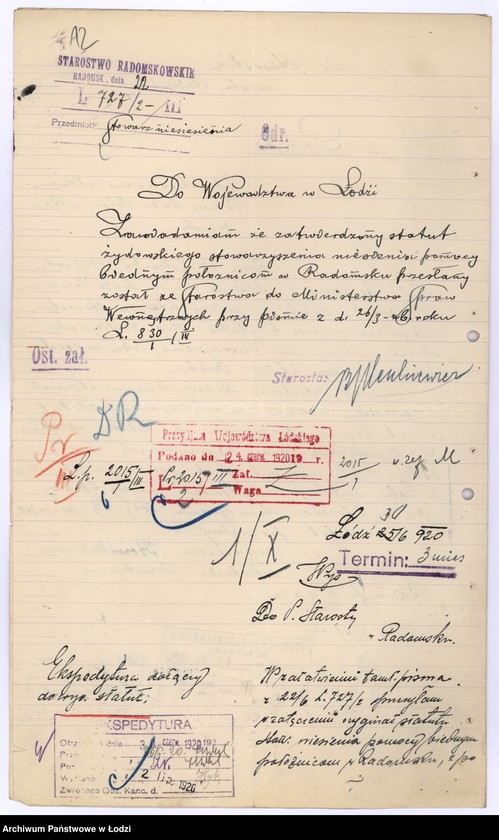 A2
STAROSTWO RADOMSKOWSKIE
RADOMSK, dnia 22
L 727/2- III
Przedmiot: Stowarz niesienia
Odr.
Do Województwa w Łodzi
Zawiadamiam że zatwierdzony statut
żydowskiego stowarzyszenia niesienia pomocy
biednym położnicom w Radomsku przesłany
został ze Starostwa do Ministerstwa Spraw
Wewnętrznych przy piśmie z d. 26/3- roku
L. 830/1/IV
Ost. zał.
Starosta:
DR
Pr/III
Prezydjum Województwa Łódzkiego
Podano do 24. czerw. 1920 19 r.
L. 2015/III Zał.
2 Waga
L.p. 2015/1/III
2015/1
M
1/X
Łódź 25/6 920
30
Termin: 3 mies
Wys
Do P. Starosty
w Radomsku.
Ekspedytura dołączy
statut.
W załatwieniu tamt. pisma
z 22/6 L. 727/2 przesyłam
w załączeniu oryginał statutu
Stow. niesienia pomocy biednym
położnicom w Radomsku, z po
EKSPEDYTURA
Otrz. dnia 3 czerw. 1920 192
Prze
Po
Wysłano 2 lip. 1920
Zwrócono Odz. Kanc. d.
Archiwum Państwowe w Łodzi